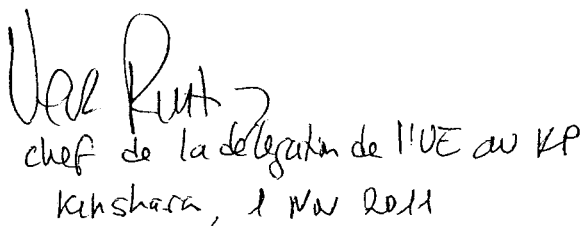 chef de la delegation de l'UE au KP
Kinshasa, 1 Nov 2011